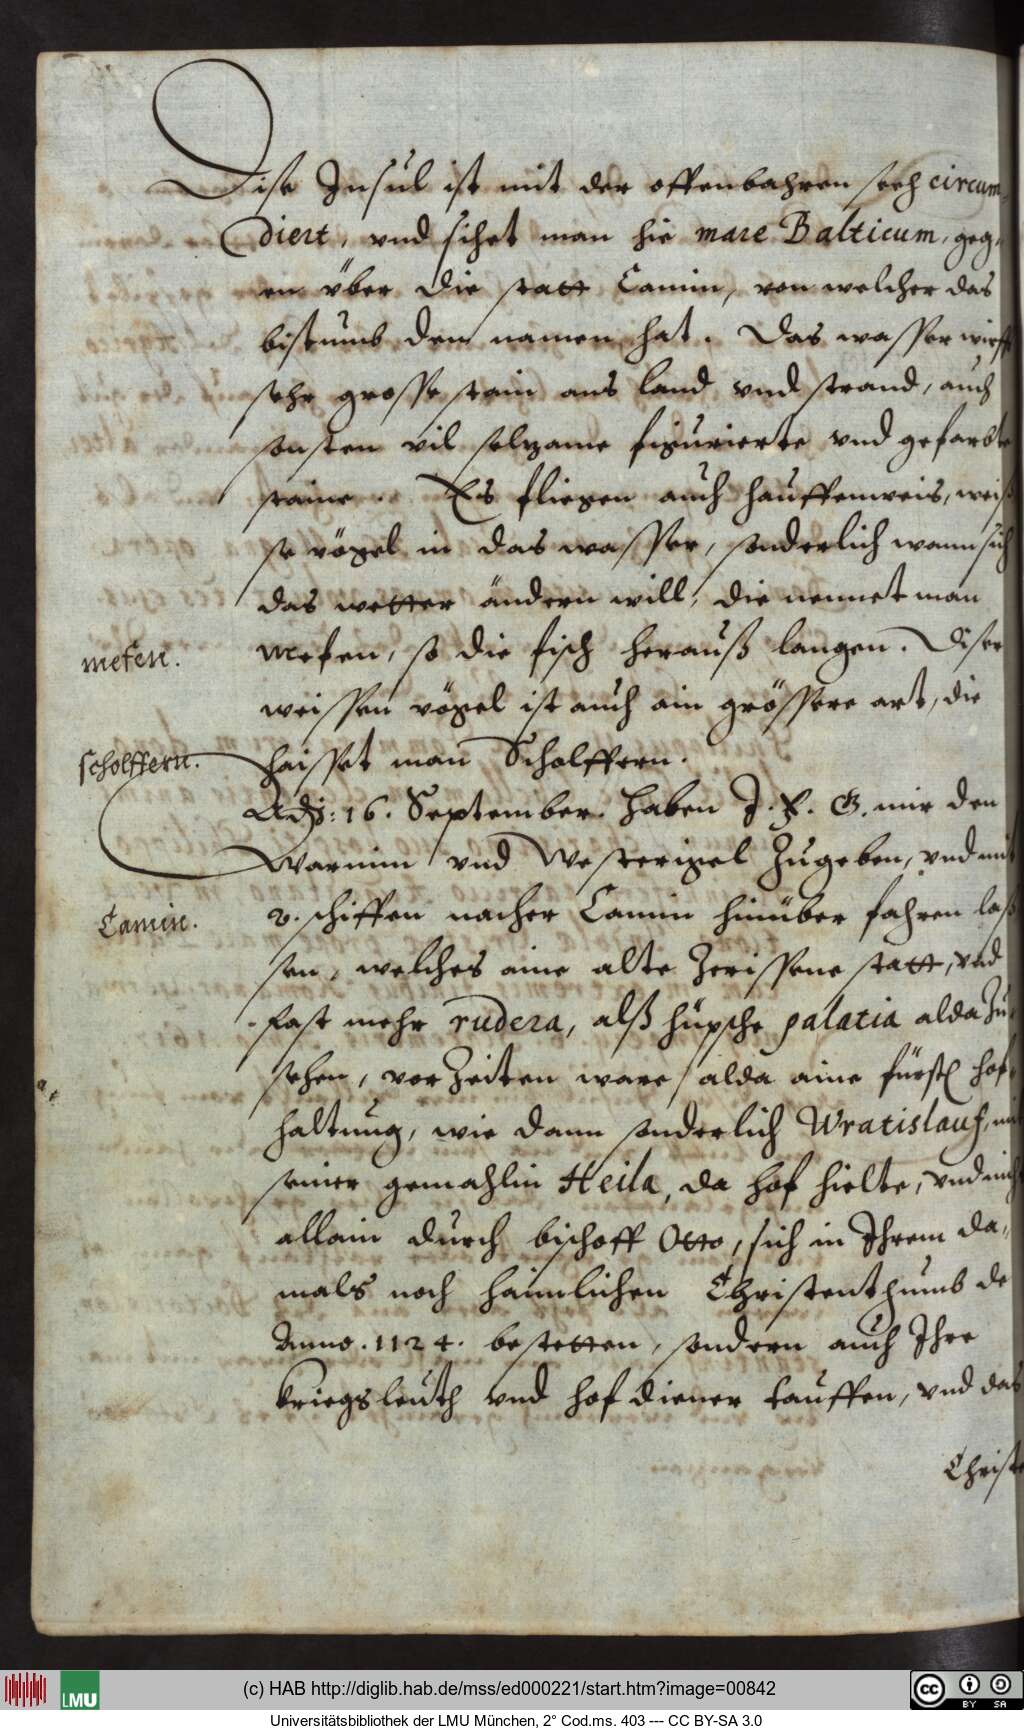 Dise Insul ist mit der offenbahren seeh circum-
diert, vnd sihet man hie mare Balticum, geg-
en über die statt Camin, von welcher das
bistumb den namen hat. Das wasser wirfft
sehr grosse stain ans land vnd strand, auch
sonsten vil selzame figurierte vnd gefarbte
staine. Es fliegen auch hauffenweis, weiß
se vögel in das wasser, sonderlich wann sich
das wetter ändern will, die nennet man
mefen.
Mefen, so die fisch herauß langen. Diser
weissen vögel ist auch ain grössere art, die
scholffern.
haisset man Scholffern.
Adj: 16. September. haben J. F. G. mir den
Warnim vnd Westerigel zugeben, vnd mit
Camin.
2. schiffen nacher Camin hinüber fahren laß
sen, welches aine alte zerissene statt, vnd
fast mehr rudera, alß hüpsche palatia alda zu
sehen, vor zeiten ware alda aine fürstl hof-
haltung, wie dann sonderlich Wratislauß, mit
seiner gemahlin Heila, da hof hielte, vnd nicht
allain durch bischoff Otto, sich in Ihrem da-
mals noch haimlichen Christenthumb de
Anno. 1124. bestetten, sondern auch Ihre
kriegsleuth vnd hofdiener tauffen, vnd das
Christe
(c) HAB http://diglib.hab.de/mss/ed000221/start.htm?image=00842
LMU
cc BY SA
Universitätsbibliothek der LMU München, 2° Cod.ms. 403 --- CC BY-SA 3.0